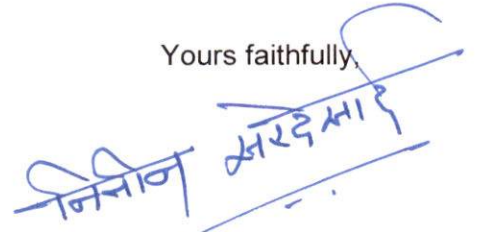 Yours faithfully,
नितीन सरदेसाई